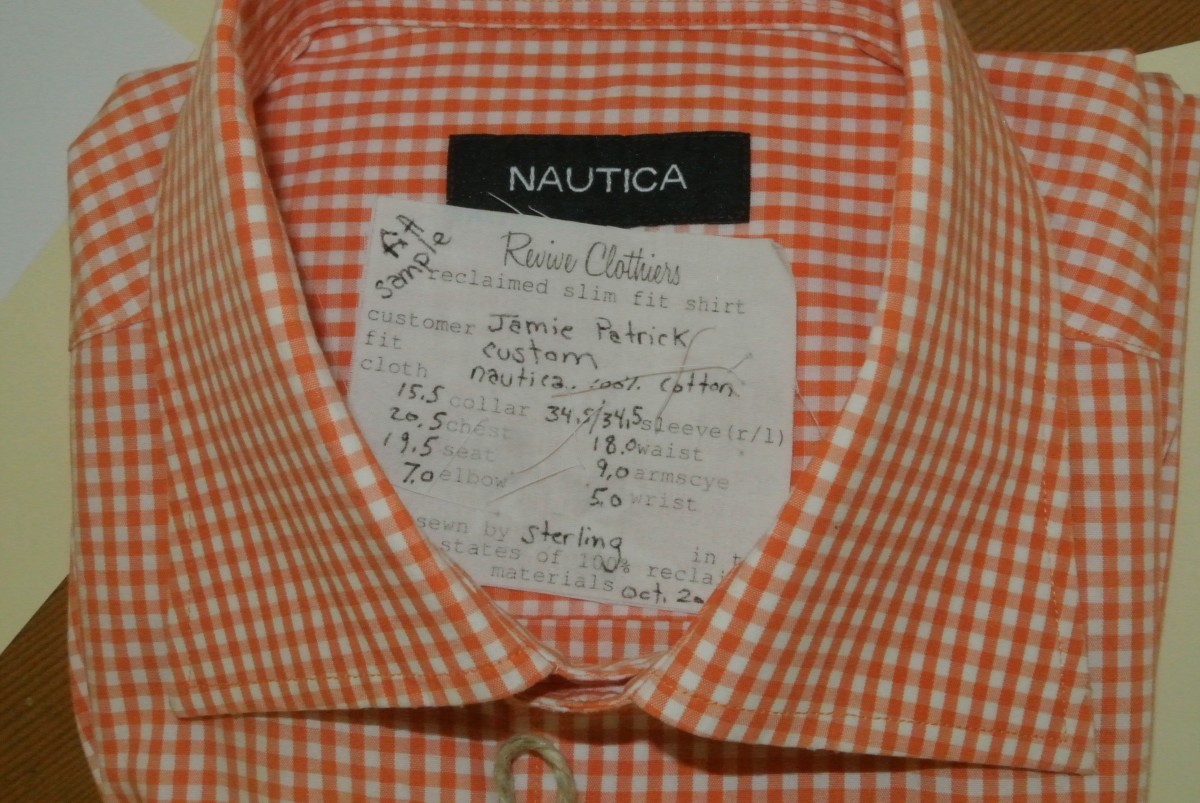 NAUTICA
Sample
Revive Clothiers
reclaimed slim fit shirt
customer Jamie Patrick
fit custom
cloth nautica. 100% cotton
15.5 collar 34.5/34.5 sleeve(r/l)
20.5 chest 18.0 waist
19.5 seat 9.0 armscye
7.0 elbow 5.0 wrist
sewn by Sterling in t
states of 100% reclai
materials Oct. 20